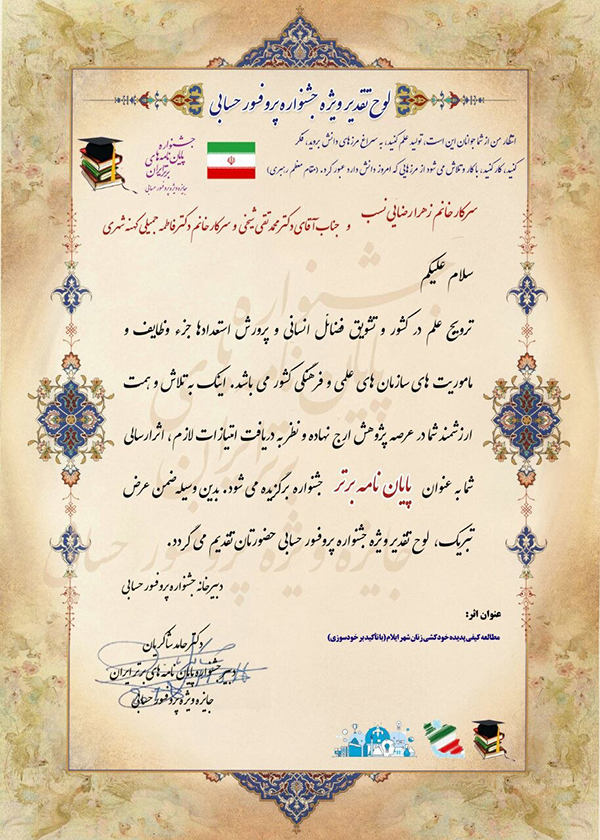 لوح تقدیر ویژه جشنواره پروفسور حسابی
انتظار من از شما جوانان این است، تولید علم کنید، به سراغ مرزهای دانش بروید، فکر
کنید، کار کنید، با کار و تلاش می شود از مرزهایی که امروز دانش دارد عبور کرد. (مقام معظم رهبری)
جشنواره
پایان نامه های
برتر ایران
جایزه ویژه پروفسور حسابی
سرکار خانم زهرا رضایی نسب و جناب آقای دکتر محمد تقی شیخی و سرکار خانم دکتر فاطمه جمیلی کهنه شهری
سلام علیکم
ترویج علم در کشور و تشویق فضائل انسانی و پرورش استعدادها جزء وظایف و
ماموریت های سازمان های علمی و فرهنگی کشور می باشد. اینک به تلاش و همت
ارزشمند شما در عرصه پژوهش ارج نهاده و نظر به دریافت امتیازات لازم، اثر ارسالی
شما به عنوان پایان نامه برتر جشنواره برگزیده می شود. بدین وسیله ضمن عرض
تبریک، لوح تقدیر ویژه جشنواره پروفسور حسابی حضورتان تقدیم می گردد.
دبیرخانه جشنواره پروفسور حسابی
عنوان اثر:
مطالعه کیفی پدیده خودکشی زنان شهر ایلام (با تأکید بر خودسوزی)
دکتر حامد شاکریان
دبیر جشنواره پایان نامه های برتر ایران
جایزه ویژه پروفسور حسابی